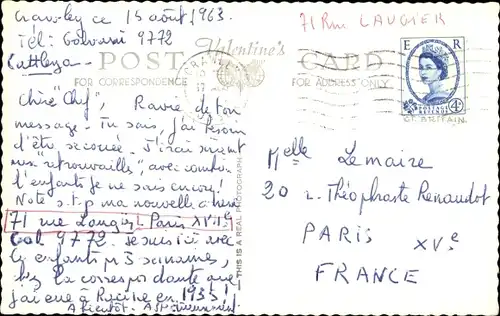 Crawley ce 15 août 1963.
Tél: Galvani 9772
Cattleya
Chère "Chef", Ravie de ton
message. Tu sais, j'ai besoin
d'être secouée. J'irai
aux "retrouvailles" avec
d'enfants je ne sais encore!
Note s.t.p ma nouvelle
71 rue Laugier Paris XVIIe
Gal 9772. Je suis ici avec
les enfants pr 3 semaines,
chez la correspondante que
j'ai eue à Racine en 1935!
A bientôt.
71 Rue LAUGIER
POST CARD
Valentine's
FOR CORRESPONDENCE
FOR ADDRESS ONLY
THIS IS A REAL PHOTOGRAPH
E R
POSTAGE REVENUE
4D
GT. BRITAIN.
Melle Lemaire
20 r. Théophraste Renaudot
PARIS XVe
FRANCE